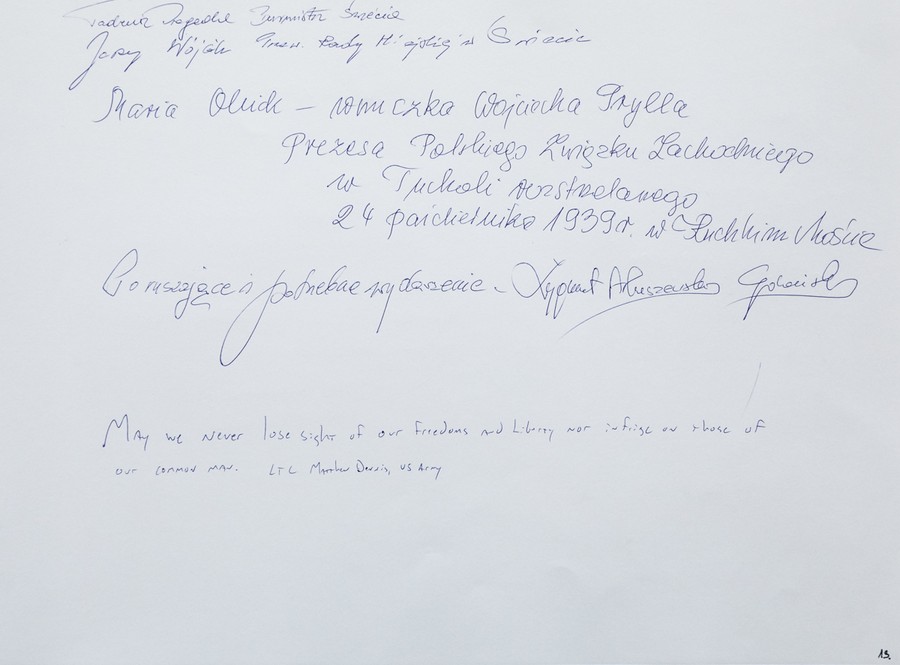 Tadeusz Pogoda Burmistrz Świecie
Jerzy Wójcik Przew. Rady Miejskiej w Świecie
Maria Ollick – wnuczka Wojciecha Prylla
Prezesa Polskiego Związku Zachodniego
w Tucholi rozstrzelanego
24 października 1939r. w Rudzkim Moście
Poruszające i potrzebne wydarzenie - Zygmunt
May we never lose sight of our freedoms and Liberty nor infrige on those of
our common man. LTC Matthew Dennis, US Army
13.